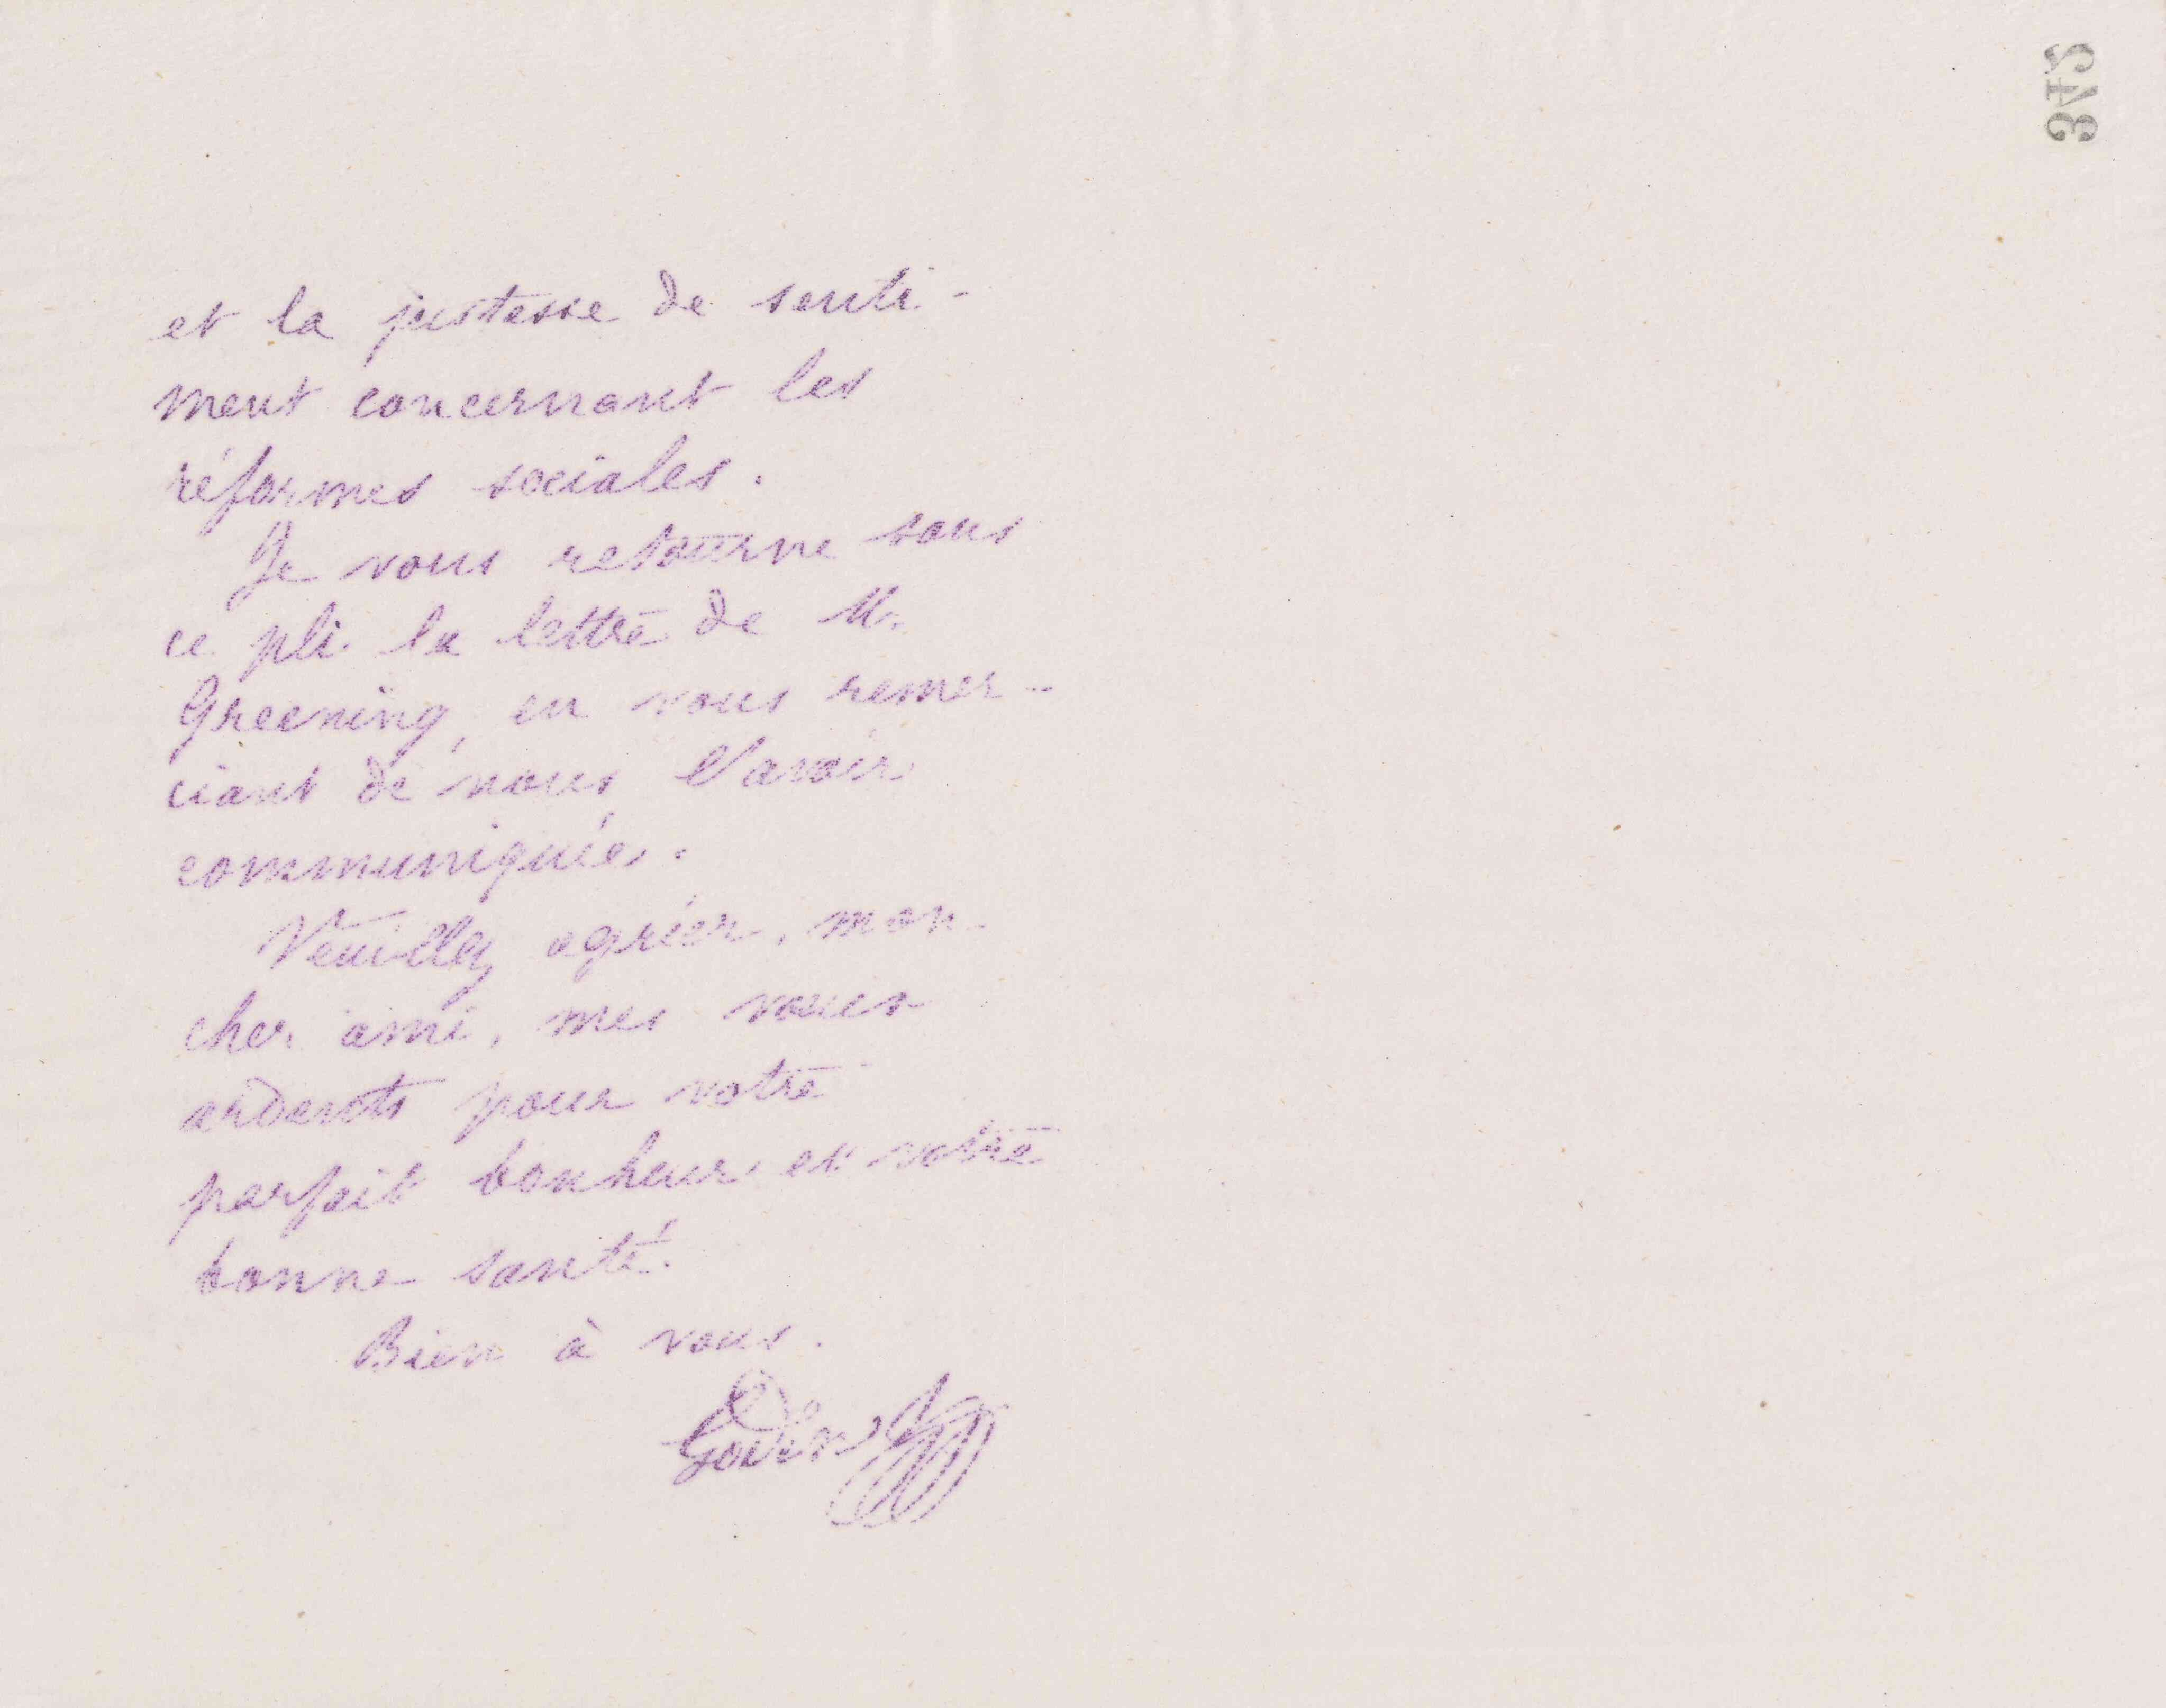 342
et la justesse de senti-
ment concernant les
réformes sociales.
Je vous retourne sous
ce pli la lettre de M.
Greening, en vous remer-
ciant de nous l'avoir
communiquée.
Veuillez agréer, mon
cher ami, mes voeux
ardents pour votre
parfait bonheur et votre
bonne santé.
Bien à vous.
Godin